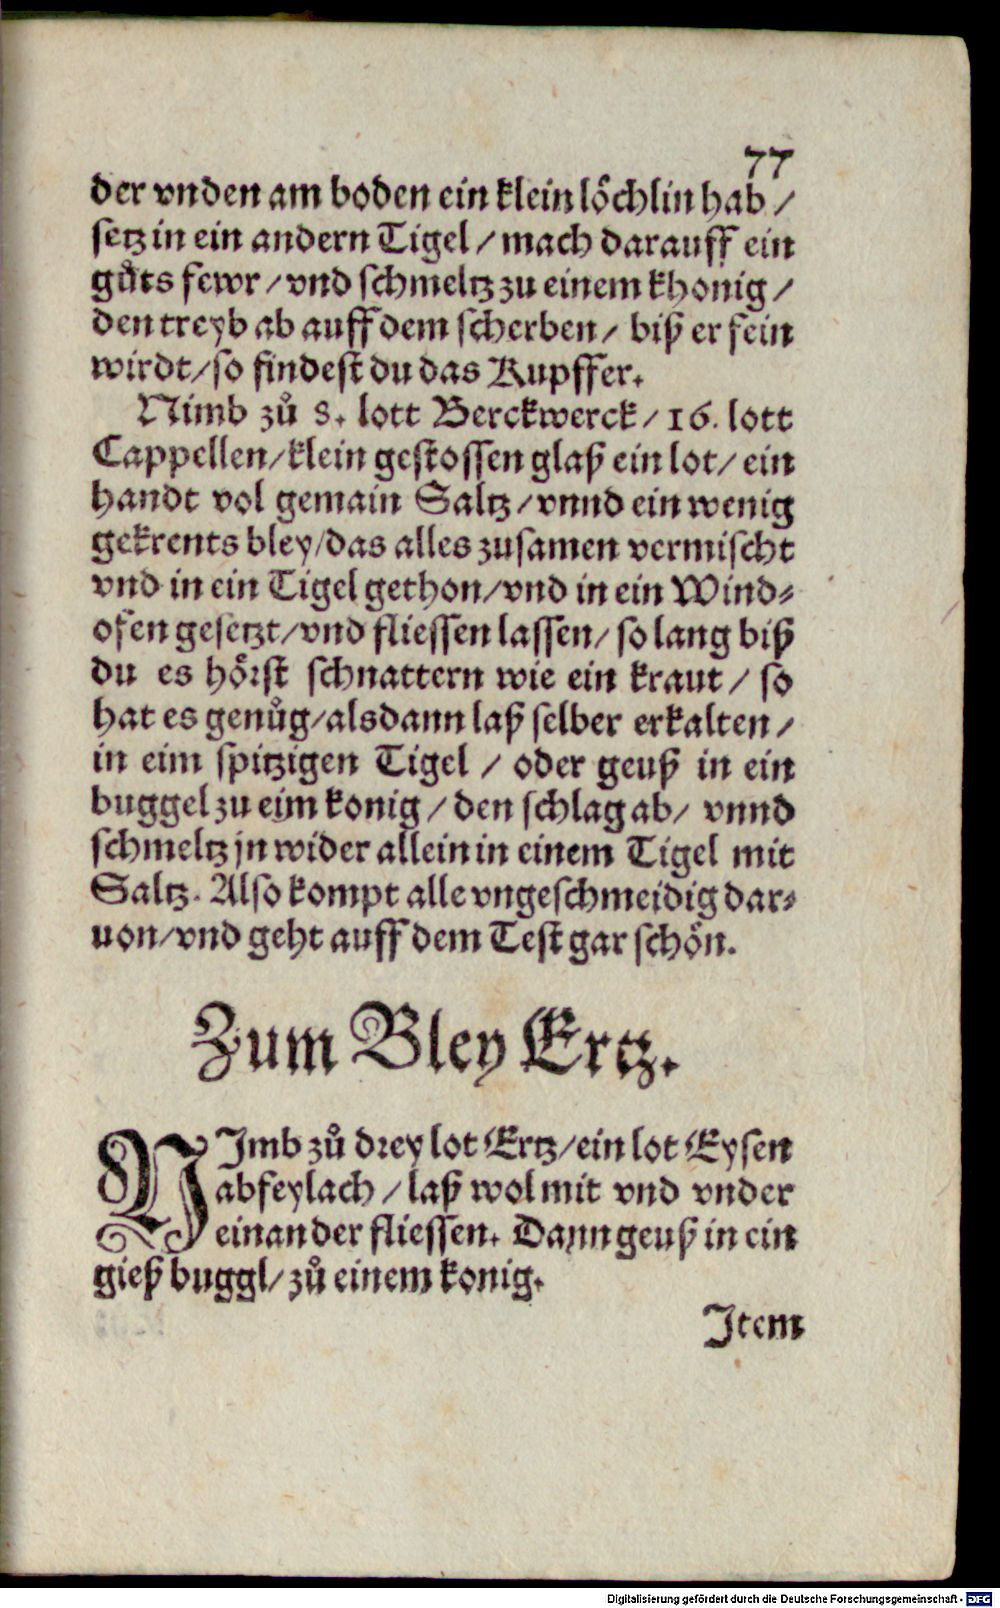 77
der vnden am boden ein klein löchlin hab /
setz in ein andern Tigel / mach darauff ein
gůts fewr / vnd schmeltz zu einem khonig /
den treyb ab auff dem scherben / biß er fein
wirdt / so findest du das Kupffer.
Nimb zů 8. lott Berckwerck / 16. lott
Cappellen / klein gestossen glaß ein lot / ein
handt vol gemain Saltz / vnnd ein wenig
gekrents bley / das alles zusamen vermischt
vnd in ein Tigel gethon / vnd in ein Wind-
ofen gesetzt / vnd fliessen lassen / so lang biß
du es hörst schnattern wie ein kraut / so
hat es genůg / alsdann laß selber erkalten /
in eim spitzigen Tigel / oder geuß in ein
buggel zu eim konig / den schlag ab / vnnd
schmeltz jn wider allein in einem Tigel mit
Saltz. Also kompt alle vngeschmeidig dar-
uon / vnd geht auff dem Test gar schön.
Zum Bley Ertz.
NImb zů drey lot Ertz / ein lot Eysen
abfeylach / laß wol mit vnd vnder
einander fliessen. Dann geuß in ein
gieß buggl / zů einem konig.
Item
Digitalisierung gefördert durch die Deutsche Forschungsgemeinschaft - DFG